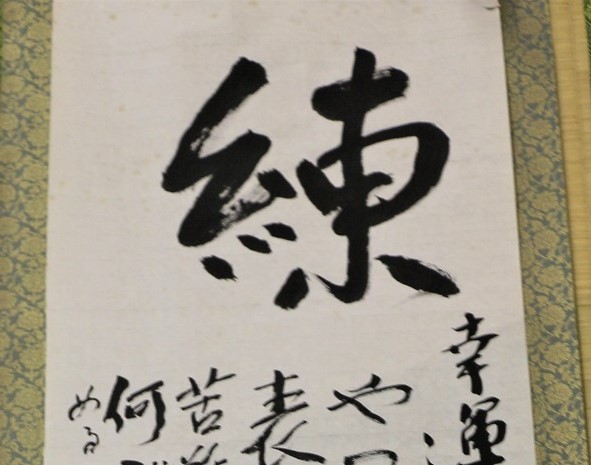 練
幸運
や
表
苦
何
める